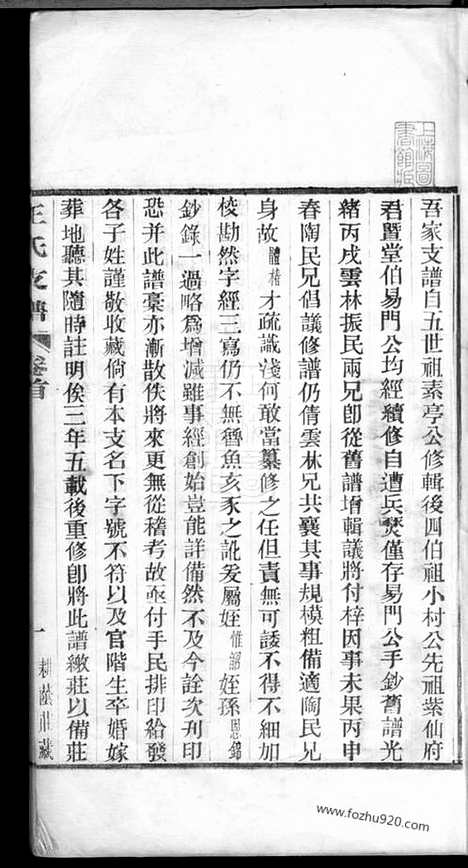 上海圖書館藏
吾家支譜自五世祖素亭公修輯後四伯祖小村公先祖紫仙府
君暨堂伯易門公均經續修自遭兵燹僅存易門公手鈔舊譜光
緒丙戌雲林振民兩兄卽從舊譜增輯議將付梓因事未果丙申
春陶民兄倡議修譜仍倩雲林兄共襄其事規模粗備適陶民兄
身故體椿才疏識淺何敢當纂修之任但責無可諉不得不細加
校勘然字經三寫仍不無魯魚亥豕之訛爰屬姪惟韶姪孫恩錦
鈔錄一過略爲增減雖事經創始豈能詳備然不及今詮次刋印
恐并此譜稾亦漸散佚將來更無從稽考故亟付手民排印給發
各子姓謹敬收藏倘有本支名下字號不符以及官階生卒婚嫁
葬地聽其隨時註明俟三年五載後重修卽將此譜繳莊以備莊
王氏支譜 卷首 一 耕蔭莊藏
www.fozhu920.com